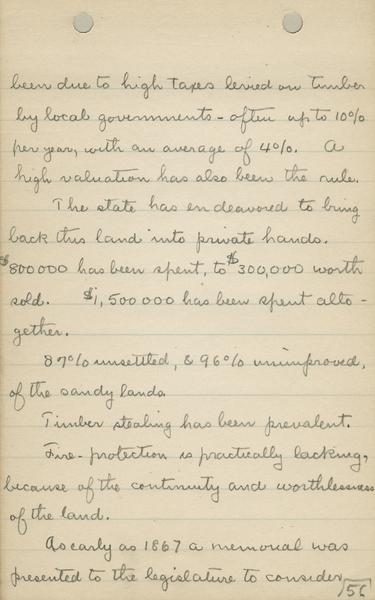 been due to high taxes levied on timber
by local governments - often up to 10%
per year, with an average of 4%. A
high valuation has also been the rule.
The state has endeavored to bring
back this land into private hands.
$800000 has been spent, to $300,000 worth
sold. $1,500000 has been spent alto-
gether.
87% unsettled, & 96% unimproved,
of the sandy lands.
Timber stealing has been prevalent.
Fire-protection is practically lacking,
because of the continuity and worthlessness
of the land.
As early as 1867 a memorial was
presented to the legislature to consider
56